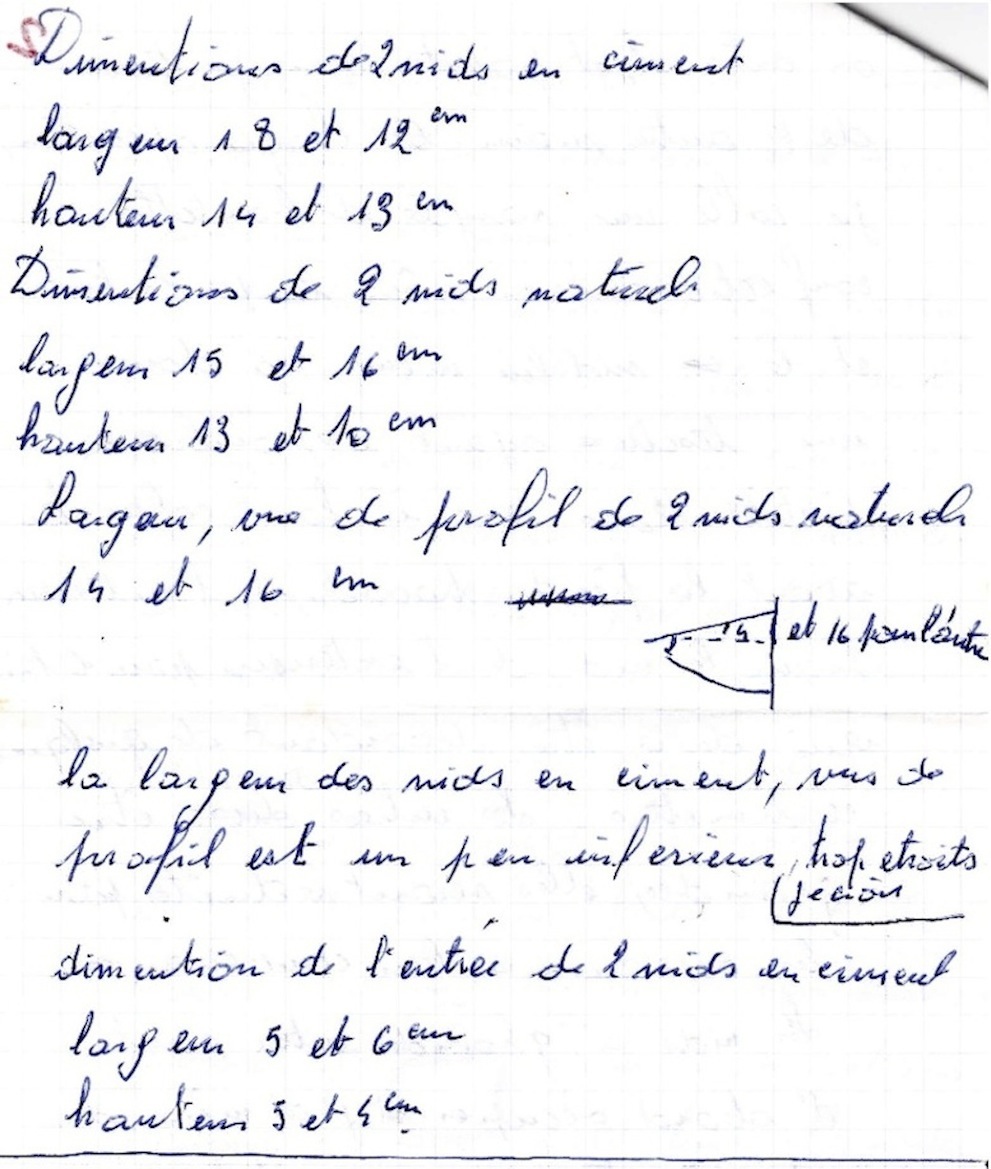 Dimentions de 2 nids en ciment
largeur 18 et 12 cm
hauteur 14 et 13 cm
Dimentions de 2 nids naturels
largeur 15 et 16 cm
hauteur 13 et 10 cm
Largeur, vue de profil de 2 nids naturels
14 et 16 cm
14 et 16 pour l'autre
la largeur des nids en ciment, vus de
profil est un peu inferieur, trop etroits
je crois
dimention de l'entrée de 2 nids en ciment
largeur 5 et 6 cm
hauteur 5 et 4 cm